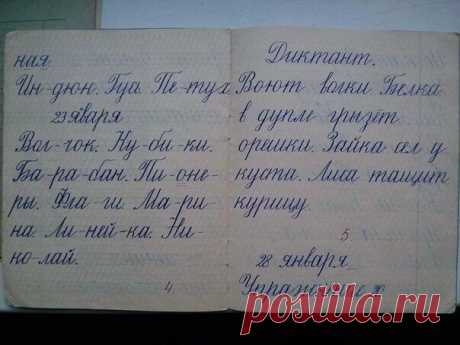 ная
Ин-дюк. Гуси. Пе-тух
23 января
Ваг-гок. Ку-би-ки.
Ба-ра-бан. Пи-оне-
ры. Фла-ги Ма-ри-
на Ли-ней-ка. Ни-
ко-лай.
4
Диктант.
Воют волки. Белка
в дупле грызёт
орешки. Зайка сел у
куста. Лиса тащит
курицу.
5
28 января
Упражнение
postila.ru